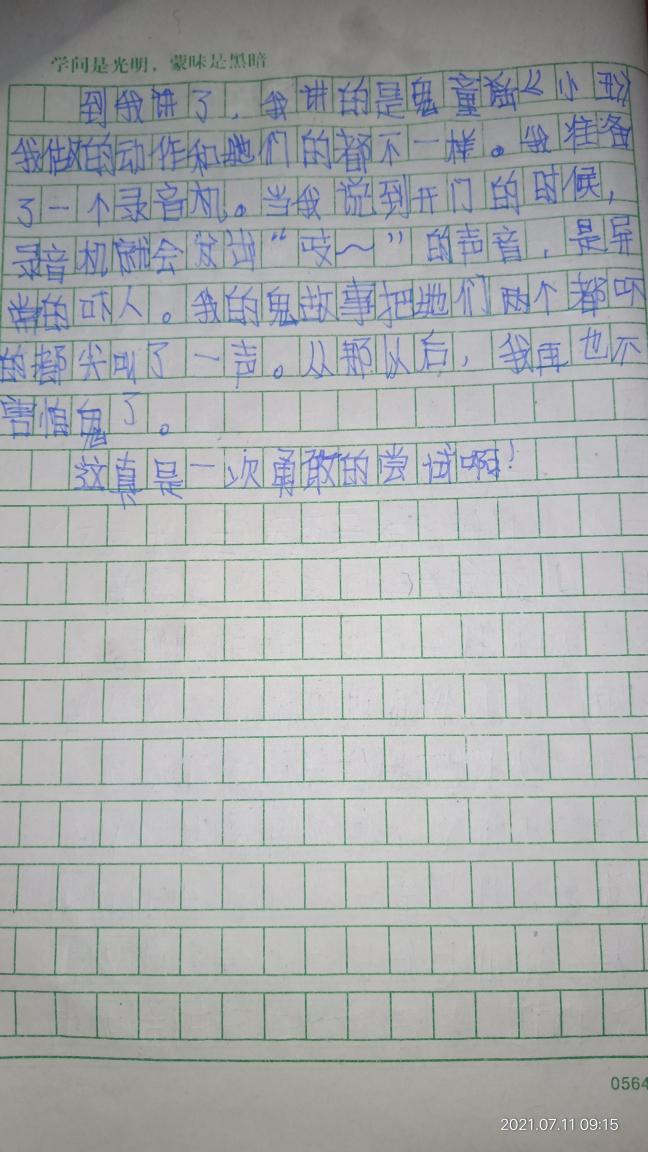 学问是光明，蒙昧是黑暗
到我讲了，我讲的是鬼童谣《小
我做的动作和她们的都不一样。我准备
了一个录音机。当我说到开门的时候，
录音机就会发出“吱～”的声音，是异
常的吓人。我的鬼故事把她们两个都吓
的都尖叫了一声。从那以后，我再也不
害怕鬼了。
这真是一次勇敢的尝试啊！
0564
2021.07.11 09:15